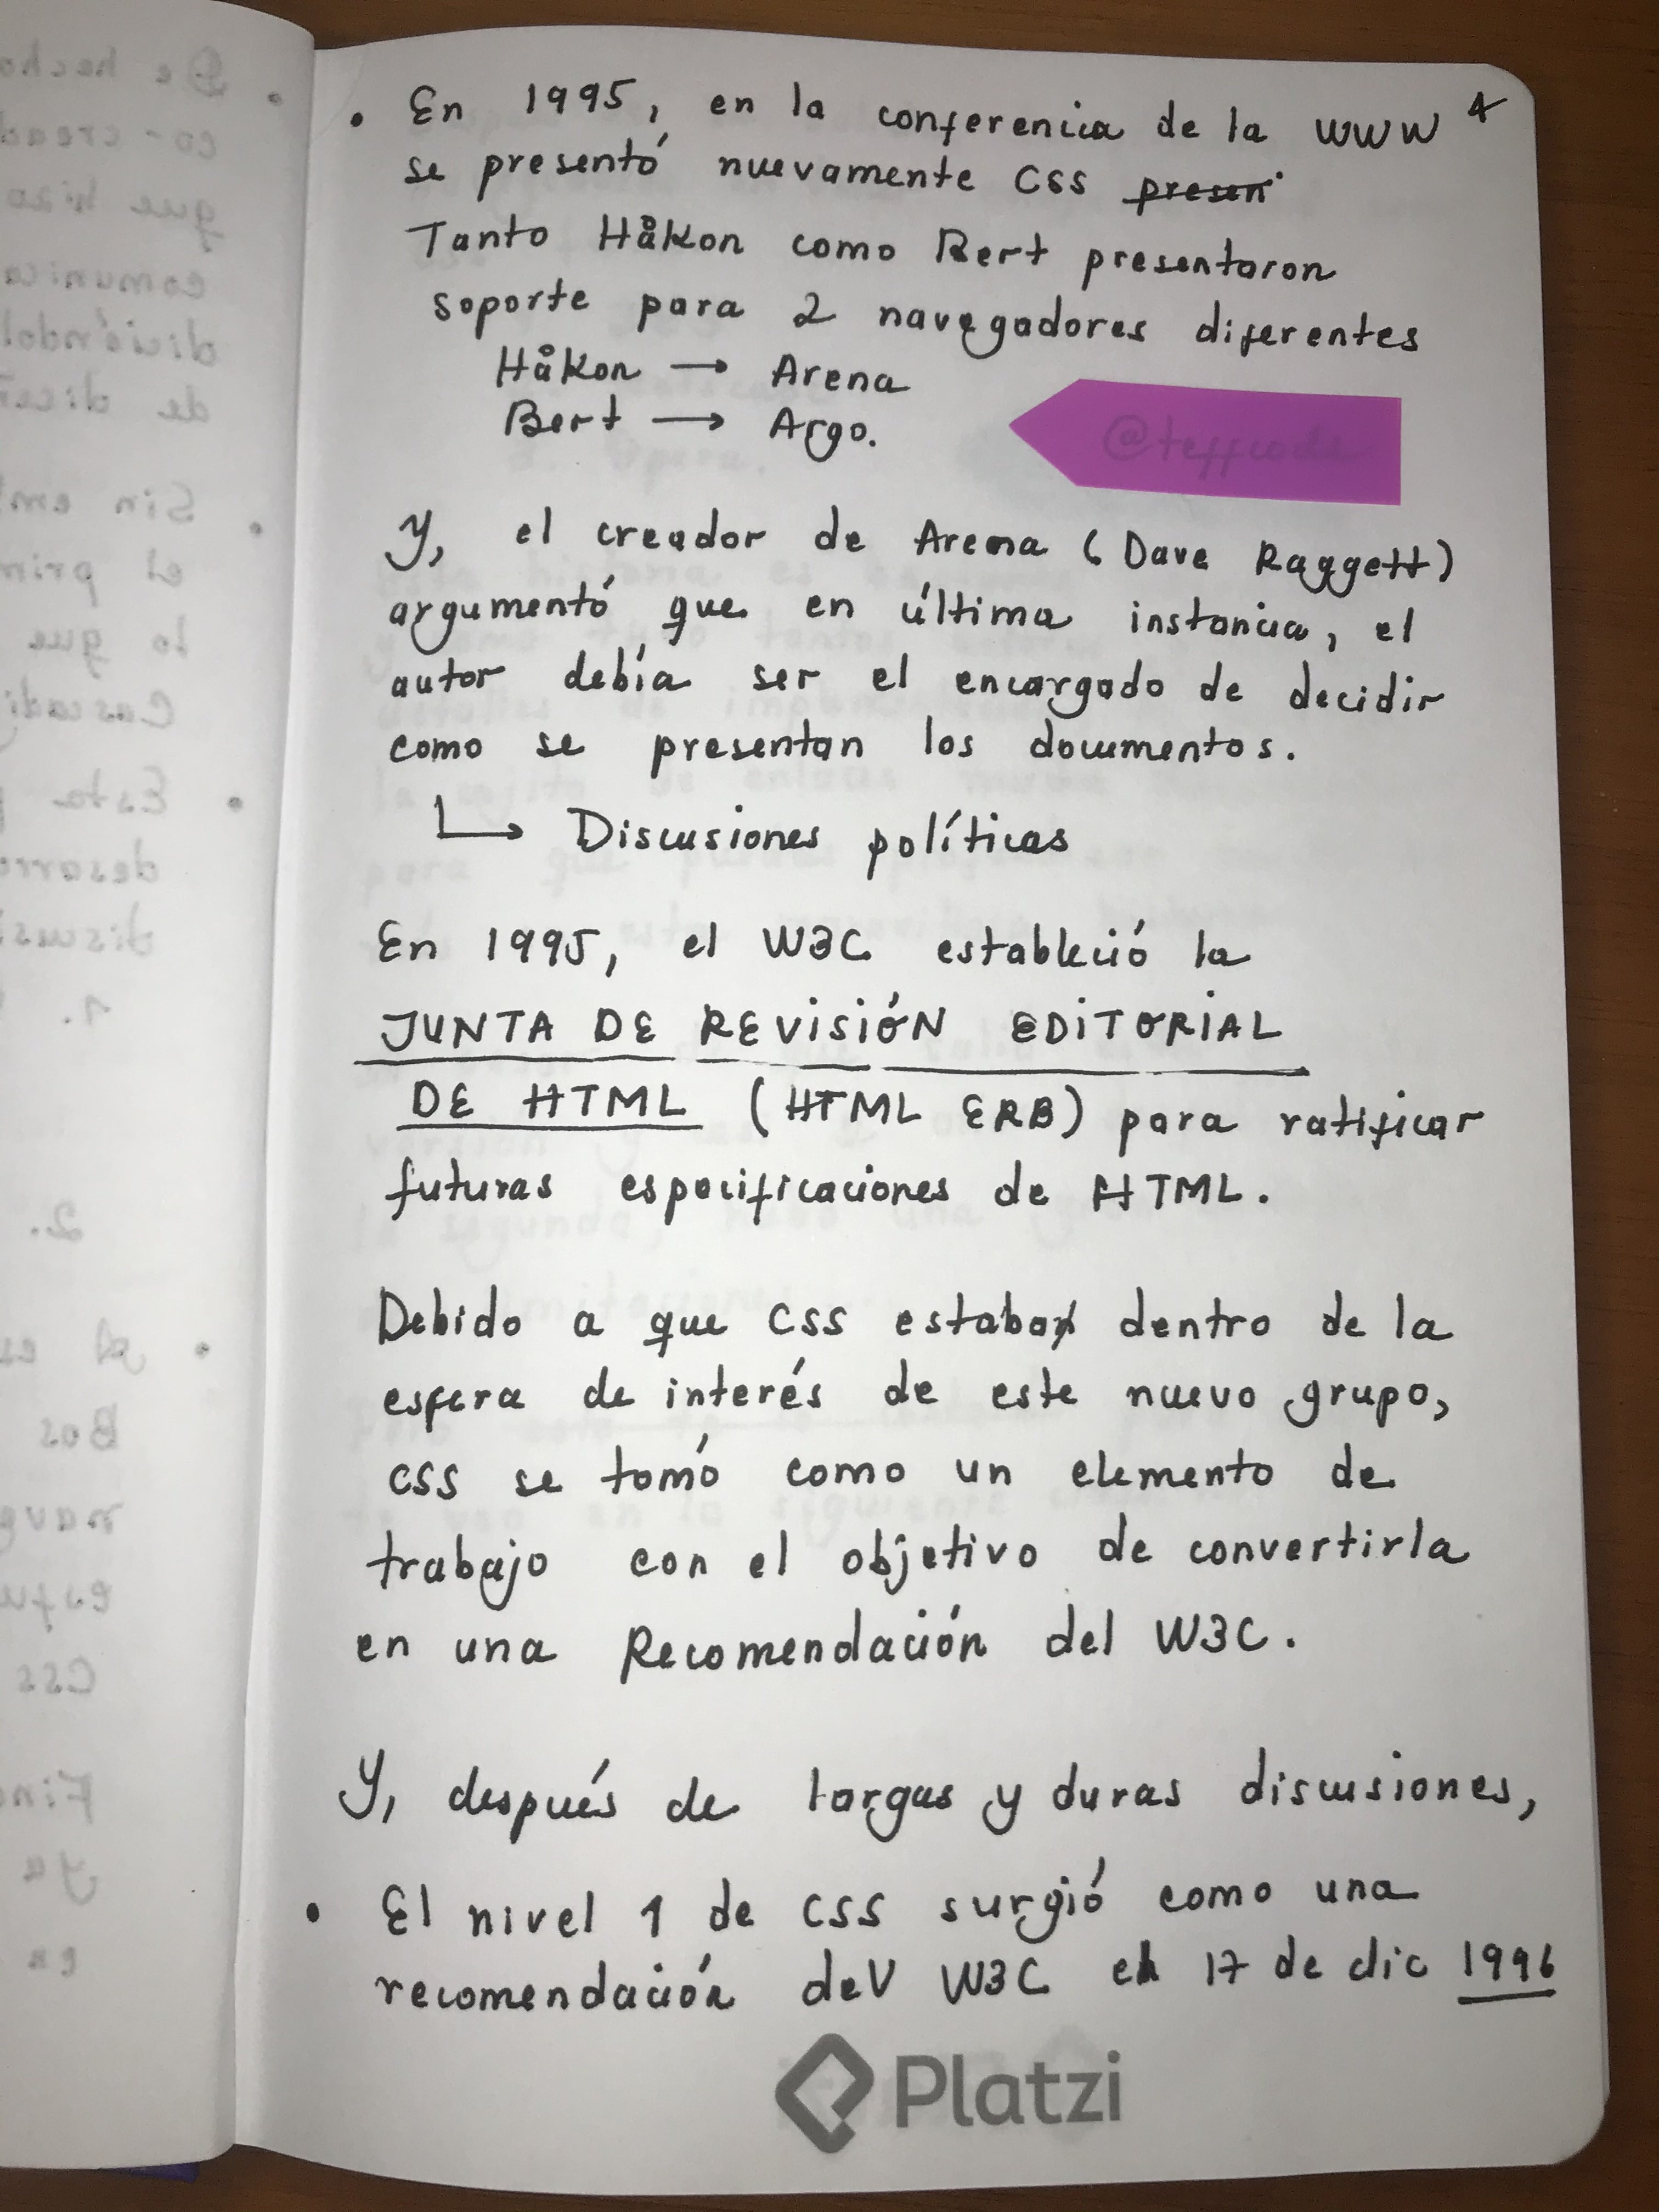 • En 1995, en la conferencia de la WWW 4
se presentó nuevamente CSS presen
Tanto Håkon como Bert presentaron
soporte para 2 navegadores diferentes
Håkon → Arena
Bert → Argo.
@teffcode
Y, el creador de Arena (Dave Raggett)
argumentó que en última instancia, el
autor debía ser el encargado de decidir
como se presentan los documentos.
↳ Discusiones políticas
En 1995, el W3C estableció la
JUNTA DE REVISIÓN EDITORIAL
DE HTML (HTML ERB) para ratificar
futuras especificaciones de HTML.
Debido a que CSS estaba dentro de la
esfera de interés de este nuevo grupo,
CSS se tomó como un elemento de
trabajo con el objetivo de convertirla
en una Recomendación del W3C.
Y, después de largas y duras discusiones,
• El nivel 1 de CSS surgió como una
recomendación del W3C el 17 de dic 1996
Platzi